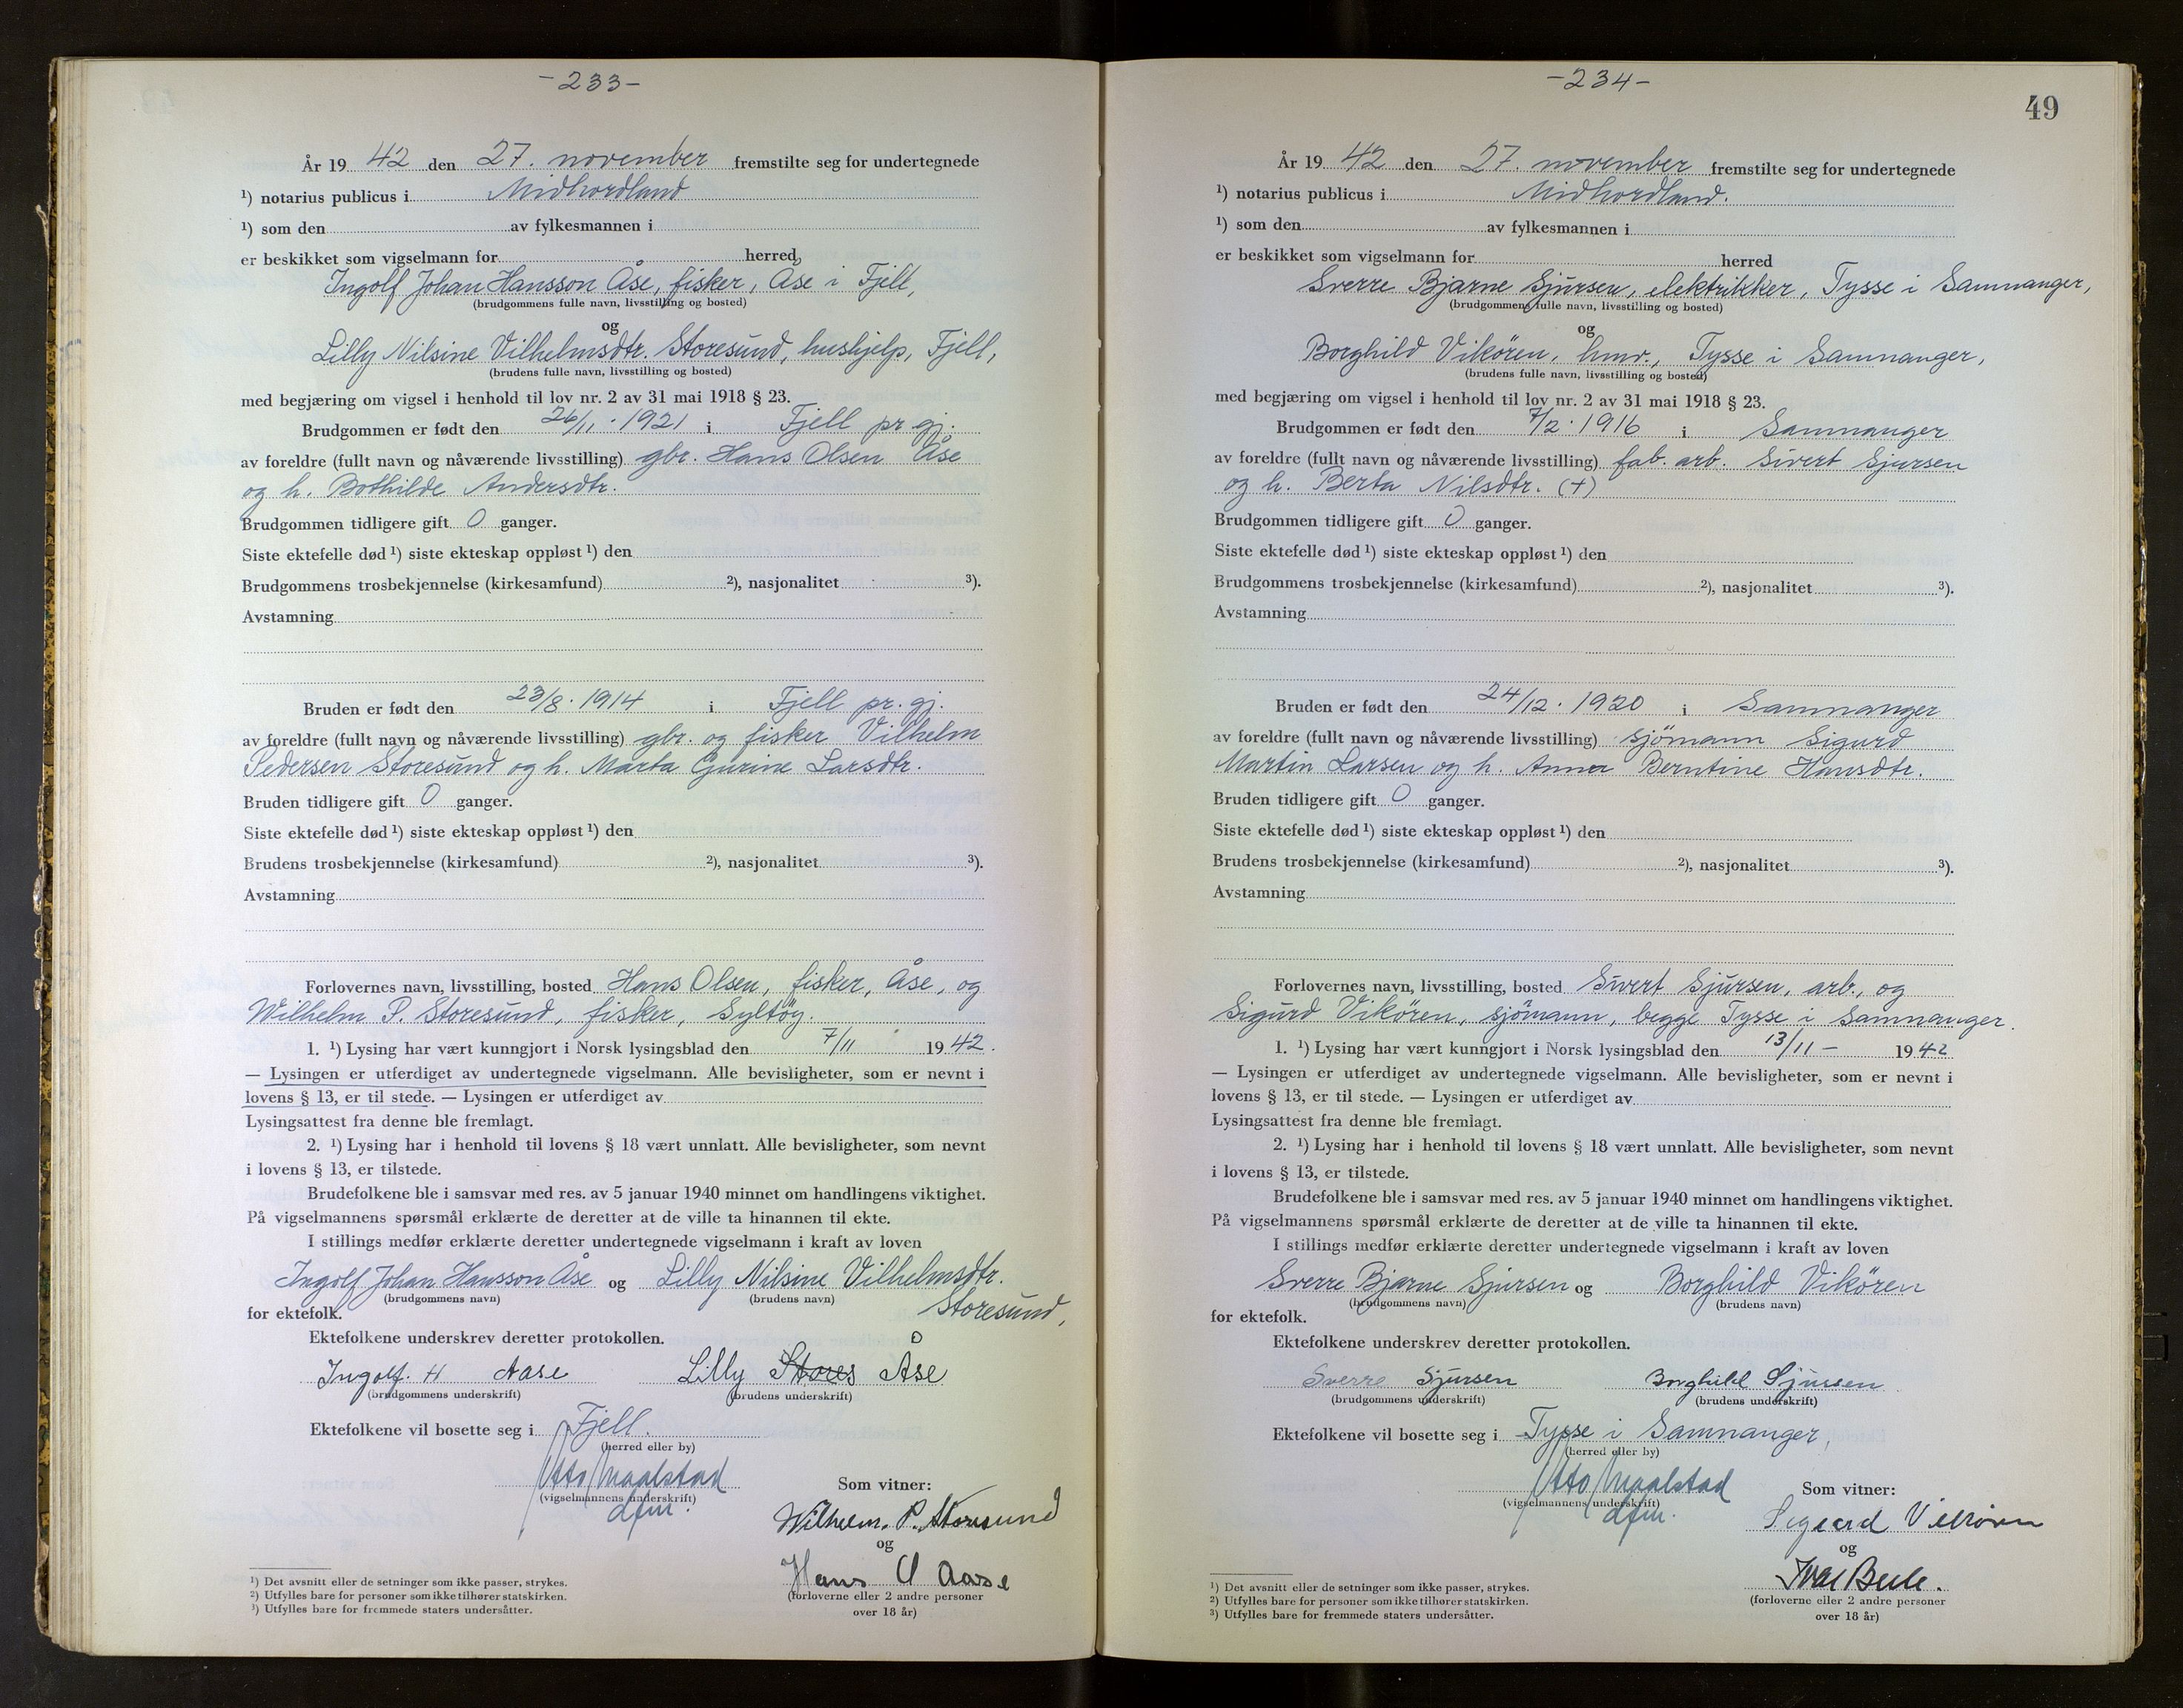 -233-
År 19 42 den 27. november fremstilte seg for undertegnede
¹) notarius publicus i Midhordland
¹) som den av fylkesmannen i
er beskikket som vigselmann for herred,
Ingolf Johan Hansson Åse, fisker, Åse i Fjell,
(brudgommens fulle navn, livsstilling og bosted)
og
Lilly Nilsine Vilhelmsdtr. Storesund, hushjelp, Fjell,
(brudens fulle navn, livsstilling og bosted)
med begjæring om vigsel i henhold til lov nr. 2 av 31 mai 1918 § 23.
Brudgommen er født den 26/11. 1921 i Fjell pr.gj.
av foreldre (fullt navn og nåværende livsstilling) gbr. Hans Olsen Åse
og h. Bothilde Andersdtr.
Brudgommen tidligere gift 0 ganger.
Siste ektefelle død ¹) siste ekteskap oppløst ¹) den
Brudgommens trosbekjennelse (kirkesamfund) ²), nasjonalitet ³).
Avstamning
Bruden er født den 23/8. 1914 i Fjell pr. gj.
av foreldre (fullt navn og nåværende livsstilling) gbr. og fisker Vilhelm
Pedersen Storesund og h. Marta Gurine Larsdtr.
Bruden tidligere gift 0 ganger.
Siste ektefelle død ¹) siste ekteskap oppløst ¹) den
Brudens trosbekjennelse (kirkesamfund) ²), nasjonalitet ³).
Avstamning
Forlovernes navn, livsstilling, bosted Hans Olsen, fisker, Åse, og
Wilhelm P. Storesund, fisker, Syltöy.
1. ¹) Lysing har vært kunngjort i Norsk lysingsblad den 7/11 19 42.
— Lysingen er utferdiget av undertegnede vigselmann. Alle bevisligheter, som er nevnt i
lovens § 13, er til stede. — Lysingen er utferdiget av
Lysingsattest fra denne ble fremlagt.
2. ¹) Lysing har i henhold til lovens § 18 vært unnlatt. Alle bevisligheter, som nevnt
i lovens § 13, er tilstede.
Brudefolkene ble i samsvar med res. av 5 januar 1940 minnet om handlingens viktighet.
På vigselmannens spørsmål erklærte de deretter at de ville ta hinannen til ekte.
I stillings medfør erklærte deretter undertegnede vigselmann i kraft av loven
Ingolf Johan Hansson Åse og Lilly Nilsine Vilhelmsdtr.
(brudgommens navn) (brudens navn) Storesund,
for ektefolk.
Ektefolkene underskrev deretter protokollen.
Ingolf. H Aase Lilly Stores Åse
(brudgommens underskrift) (brudens underskrift)
Ektefolkene vil bosette seg i Fjell.
(herred eller by)
Otto Maalstad
(vigselmannens underskrift)
dfm.
Som vitner:
Wilhelm. P. Storesund
og
Hans O Aase
(forloverne eller 2 andre personer
over 18 år)
¹) Det avsnitt eller de setninger som ikke passer, strykes.
²) Utfylles bare for personer som ikke tilhører statskirken.
³) Utfylles bare for fremmede staters undersåtter.
-234-
49
År 19 42 den 27. november fremstilte seg for undertegnede
¹) notarius publicus i Midhordland.
¹) som den av fylkesmannen i
er beskikket som vigselmann for herred
Sverre Bjarne Sjursen, elektrikker, Tysse i Samnanger,
(brudgommens fulle navn, livsstilling og bosted)
og
Borghild Vikören, hmv., Tysse i Samnanger,
(brudens fulle navn, livsstilling og bosted)
med begjæring om vigsel i henhold til lov nr. 2 av 31 mai 1918 § 23.
Brudgommen er født den 7/2. 1916 i Samnanger
av foreldre (fullt navn og nåværende livsstilling) fab. arb. Sivert Sjursen
og h. Berta Nilsdtr. (+)
Brudgommen tidligere gift 0 ganger.
Siste ektefelle død ¹) siste ekteskap oppløst ¹) den
Brudgommens trosbekjennelse (kirkesamfund) ²), nasjonalitet ³).
Avstamning
Bruden er født den 24/12. 1920 i Samnanger
av foreldre (fullt navn og nåværende livsstilling) sjömann Sigurd
Martin Larsen og h. Anna Berntine Hansdtr.
Bruden tidligere gift 0 ganger.
Siste ektefelle død ¹) siste ekteskap oppløst ¹) den
Brudens trosbekjennelse (kirkesamfund) ²), nasjonalitet ³).
Avstamning
Forlovernes navn, livsstilling, bosted Sivert Sjursen, arb., og
Sigurd Vikören, sjömann, begge Tysse i Samnanger.
1. ¹) Lysing har vært kunngjort i Norsk lysingsblad den 13/11 - 19 42
— Lysingen er utferdiget av undertegnede vigselmann. Alle bevisligheter, som er nevnt i
lovens § 13, er til stede. — Lysingen er utferdiget av
Lysingsattest fra denne ble fremlagt.
2. ¹) Lysing har i henhold til lovens § 18 vært unnlatt. Alle bevisligheter, som nevnt
i lovens § 13, er tilstede.
Brudefolkene ble i samsvar med res. av 5 januar 1940 minnet om handlingens viktighet.
På vigselmannens spørsmål erklærte de deretter at de ville ta hinannen til ekte.
I stillings medfør erklærte deretter undertegnede vigselmann i kraft av loven
Sverre Bjarne Sjursen og Borghild Vikören
(brudgommens navn) (brudens navn)
for ektefolk.
Ektefolkene underskrev deretter protokollen.
Sverre Sjursen Borghild Sjursen
(brudgommens underskrift) (brudens underskrift)
Ektefolkene vil bosette seg i Tysse i Samnanger,
(herred eller by)
Otto Maalstad
(vigselmannens underskrift)
dfm.
Som vitner:
Sigurd Vikören
og
(forloverne eller 2 andre personer
over 18 år)
¹) Det avsnitt eller de setninger som ikke passer, strykes.
²) Utfylles bare for personer som ikke tilhører statskirken.
³) Utfylles bare for fremmede staters undersåtter.